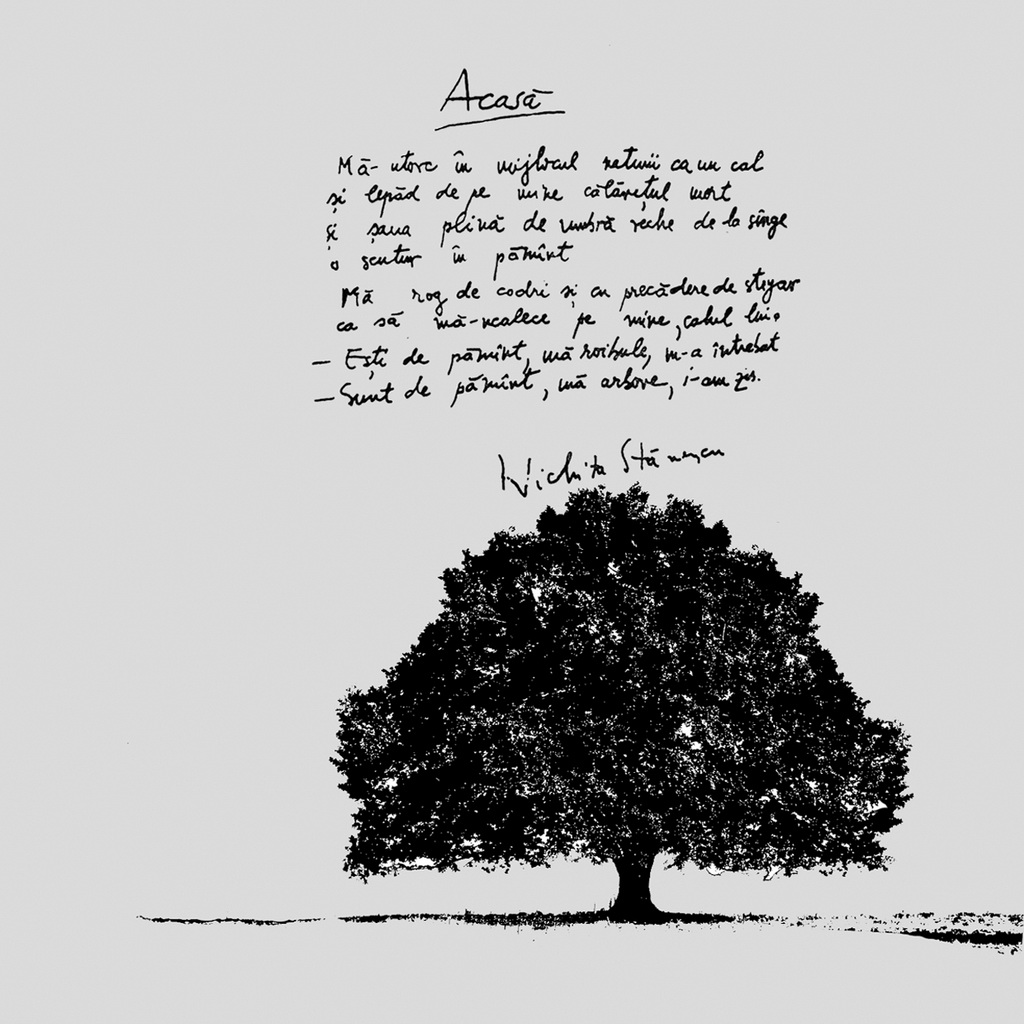 Acasă
Mă-ntorc în mijlocul naturii ca un cal
și lepăd de pe mine călărețul mort
și șaua plină de umbră veche de la sînge
o scutur în pămînt
Mă rog de codri și cu precădere de stejar
ca să mă-ncalece pe mine, calul lui.
— Ești de pămînt, mă roibule, m-a întrebat
— Sunt de pămînt, mă arbore, i-am zis.
Nichita Stănescu